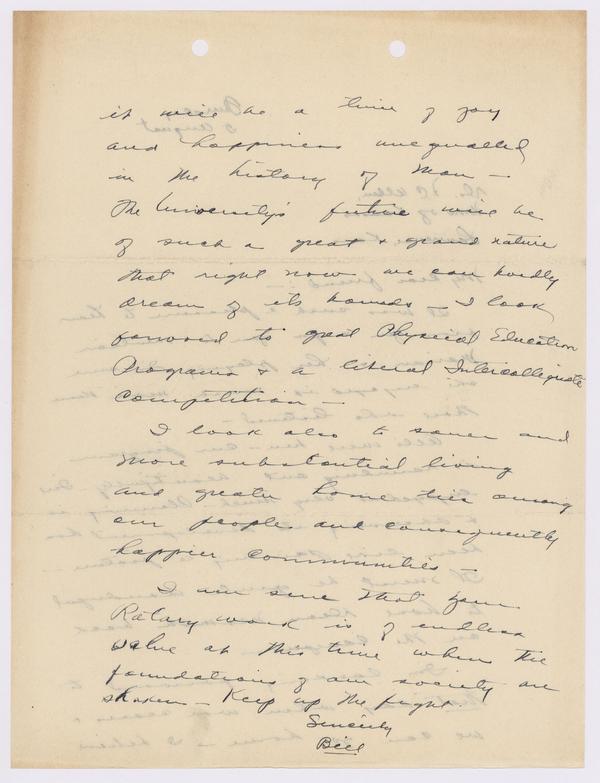 it will be a time of joy
and happiness unequalled
in the history of Man –
The University's future will be
of such a great & grand nature
that right now we can hardly
dream of its bounds – I look
forward to great Physical Education
Programs & a liberal Intercollegiate
Competition –
I look also to saner and
more substantial living
and greater home ties among
our people and consequently
happier communities –
I am sure that your
Rotary work is of endless
value at this time when the
foundations of our society are
shaken – Keep up the fight.
Sincerely
Bill